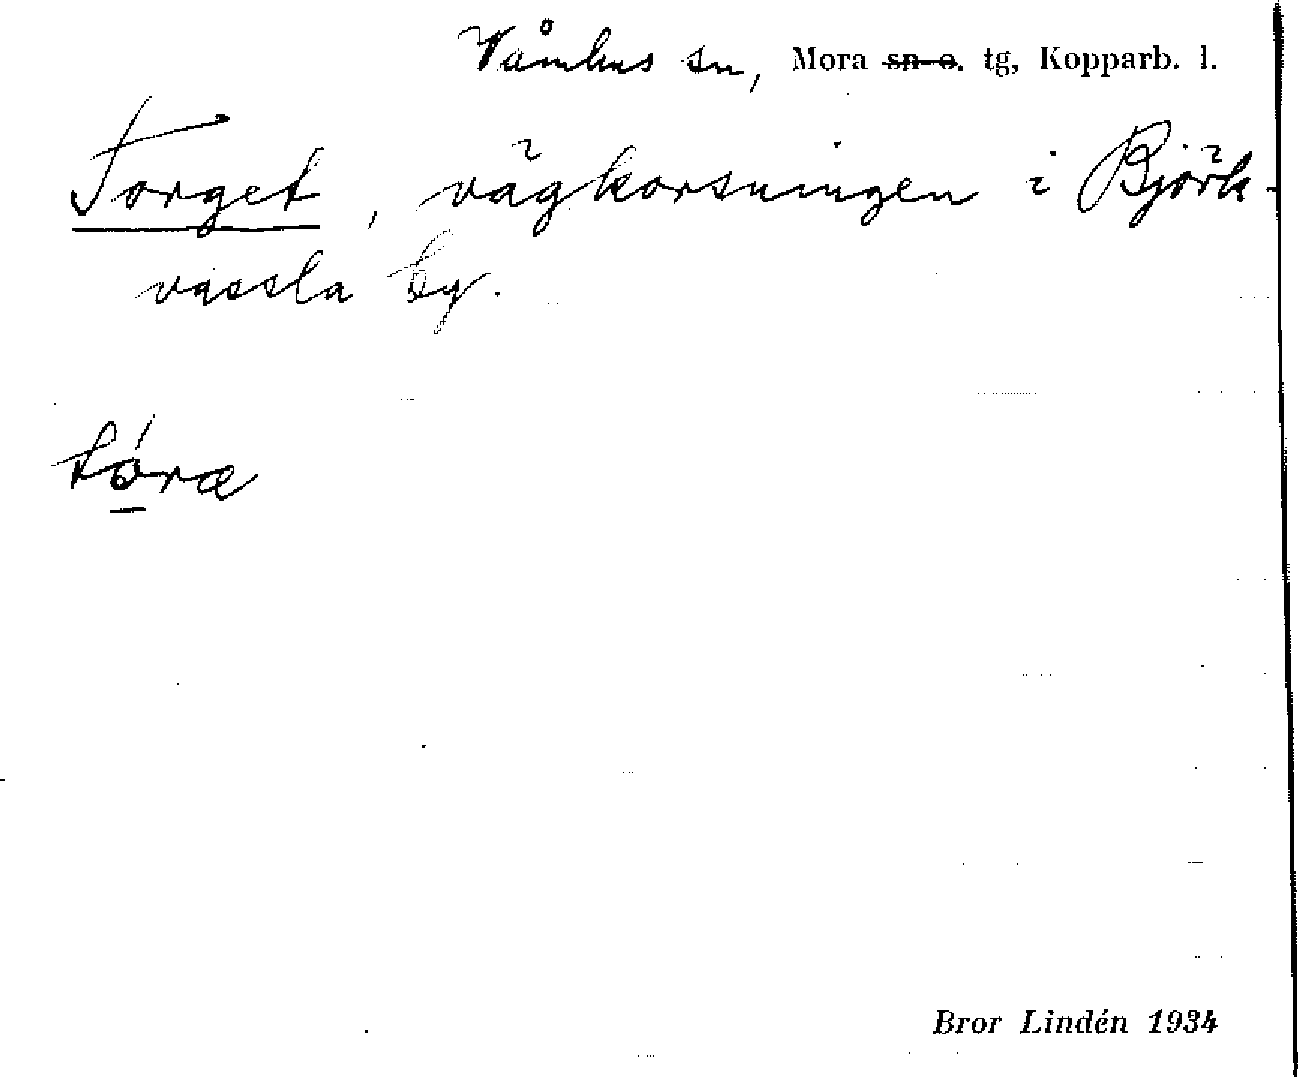 Våmhus sn, Mora sn o. tg, Kopparb. l.
Torget, vägkorsningen i Björk-
vassla by.
tóræ
Bror Lindén 1934